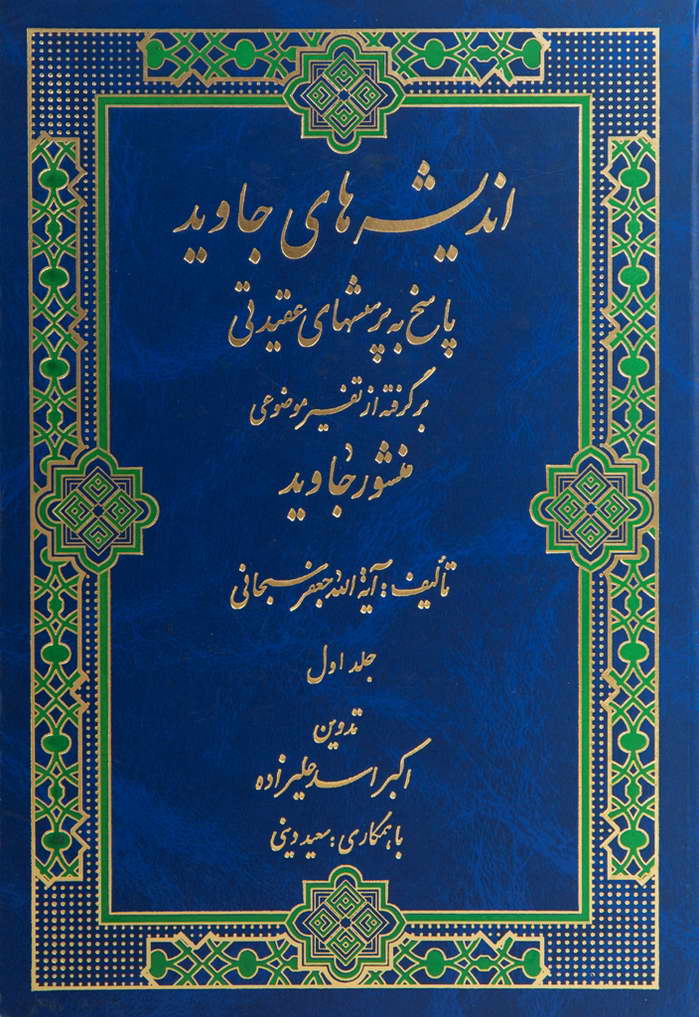 اندیشه های جاوید
پاسخ به پرسشهای عقیدتی
برگرفته از تفسیر موضوعی
منشور جاوید
تألیف: آیة الله جعفر سبحانی
جلد اول
تدوین
اکبر اسد علیزاده
با همکاری: سعید دینی